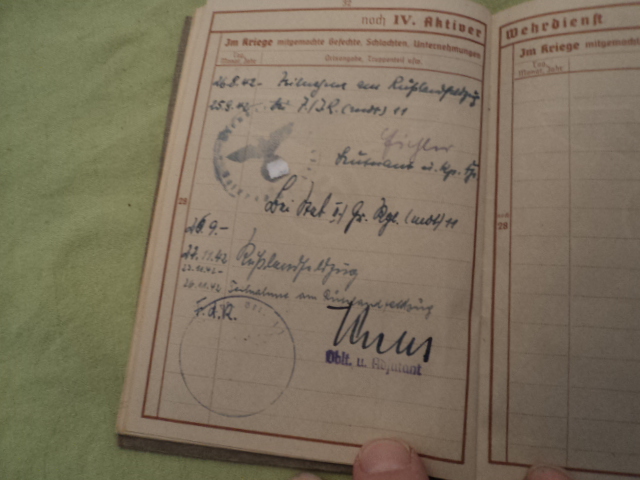 32
noch IV. Aktiver
Wehrdienst
Im Kriege mitgemachte Gefechte, Schlachten, Unternehmungen
Tag, Monat, Jahr
Ortsangabe, Truppenteil usw.
Im Kriege mitgemachte
Tag, Monat, Jahr
26.8.42- Teilnahme am Rußlandfeldzug
25.9.42. bei 7./I.R. (mot) 11
Leutnant u. Kp. Fhr.
28
noch 28
Bei Stab II/ Gr. Rgt. (mot) 11
26.9.-
22.11.42 Rußlandfeldzug
23.11.42-
26.11.42 Teilnahme am Rußlandfeldzug
F.d.R.
Oblt. u. Adjutant